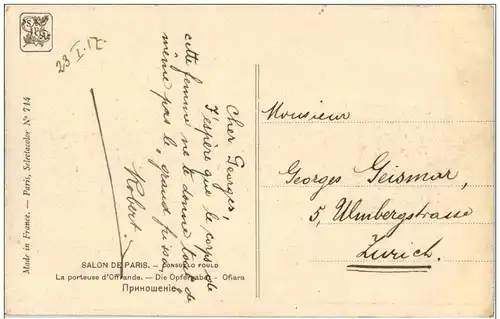 29 I. 17.
Cher Georges,
J'espère que le corps de
cette femme ne te donne tout de
même pas le "grand frisson"
Robert.
Monsieur
Georges Geismar,
5, Ulmbergstrasse
Zurich.
Made in France. — Paris, Selectacolor Nº 714
SALON DE PARIS. — CONSUELO FOULD
La porteuse d'Offrande. — Die Opfergabe. — Ofiara
Приношеніе